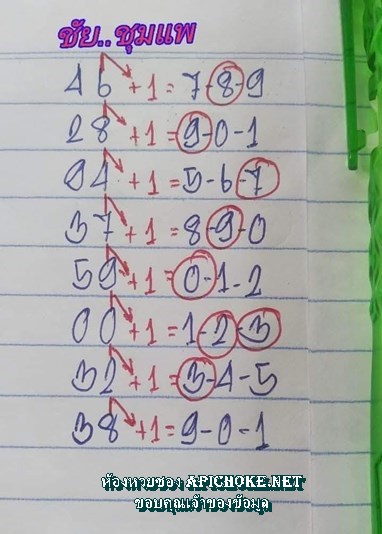 ชัย..ชุมแพ
46 +1=7-8-9
28 +1=9-0-1
94 +1=5-6-7
37 +1=8-9-0
59 +1=0-1-2
00 +1=1-2-3
32 +1=3-4-5
38 +1=9-0-1
ห้องหวยซอง APICHOKE.NET
ขอบคุณเจ้าของข้อมูล